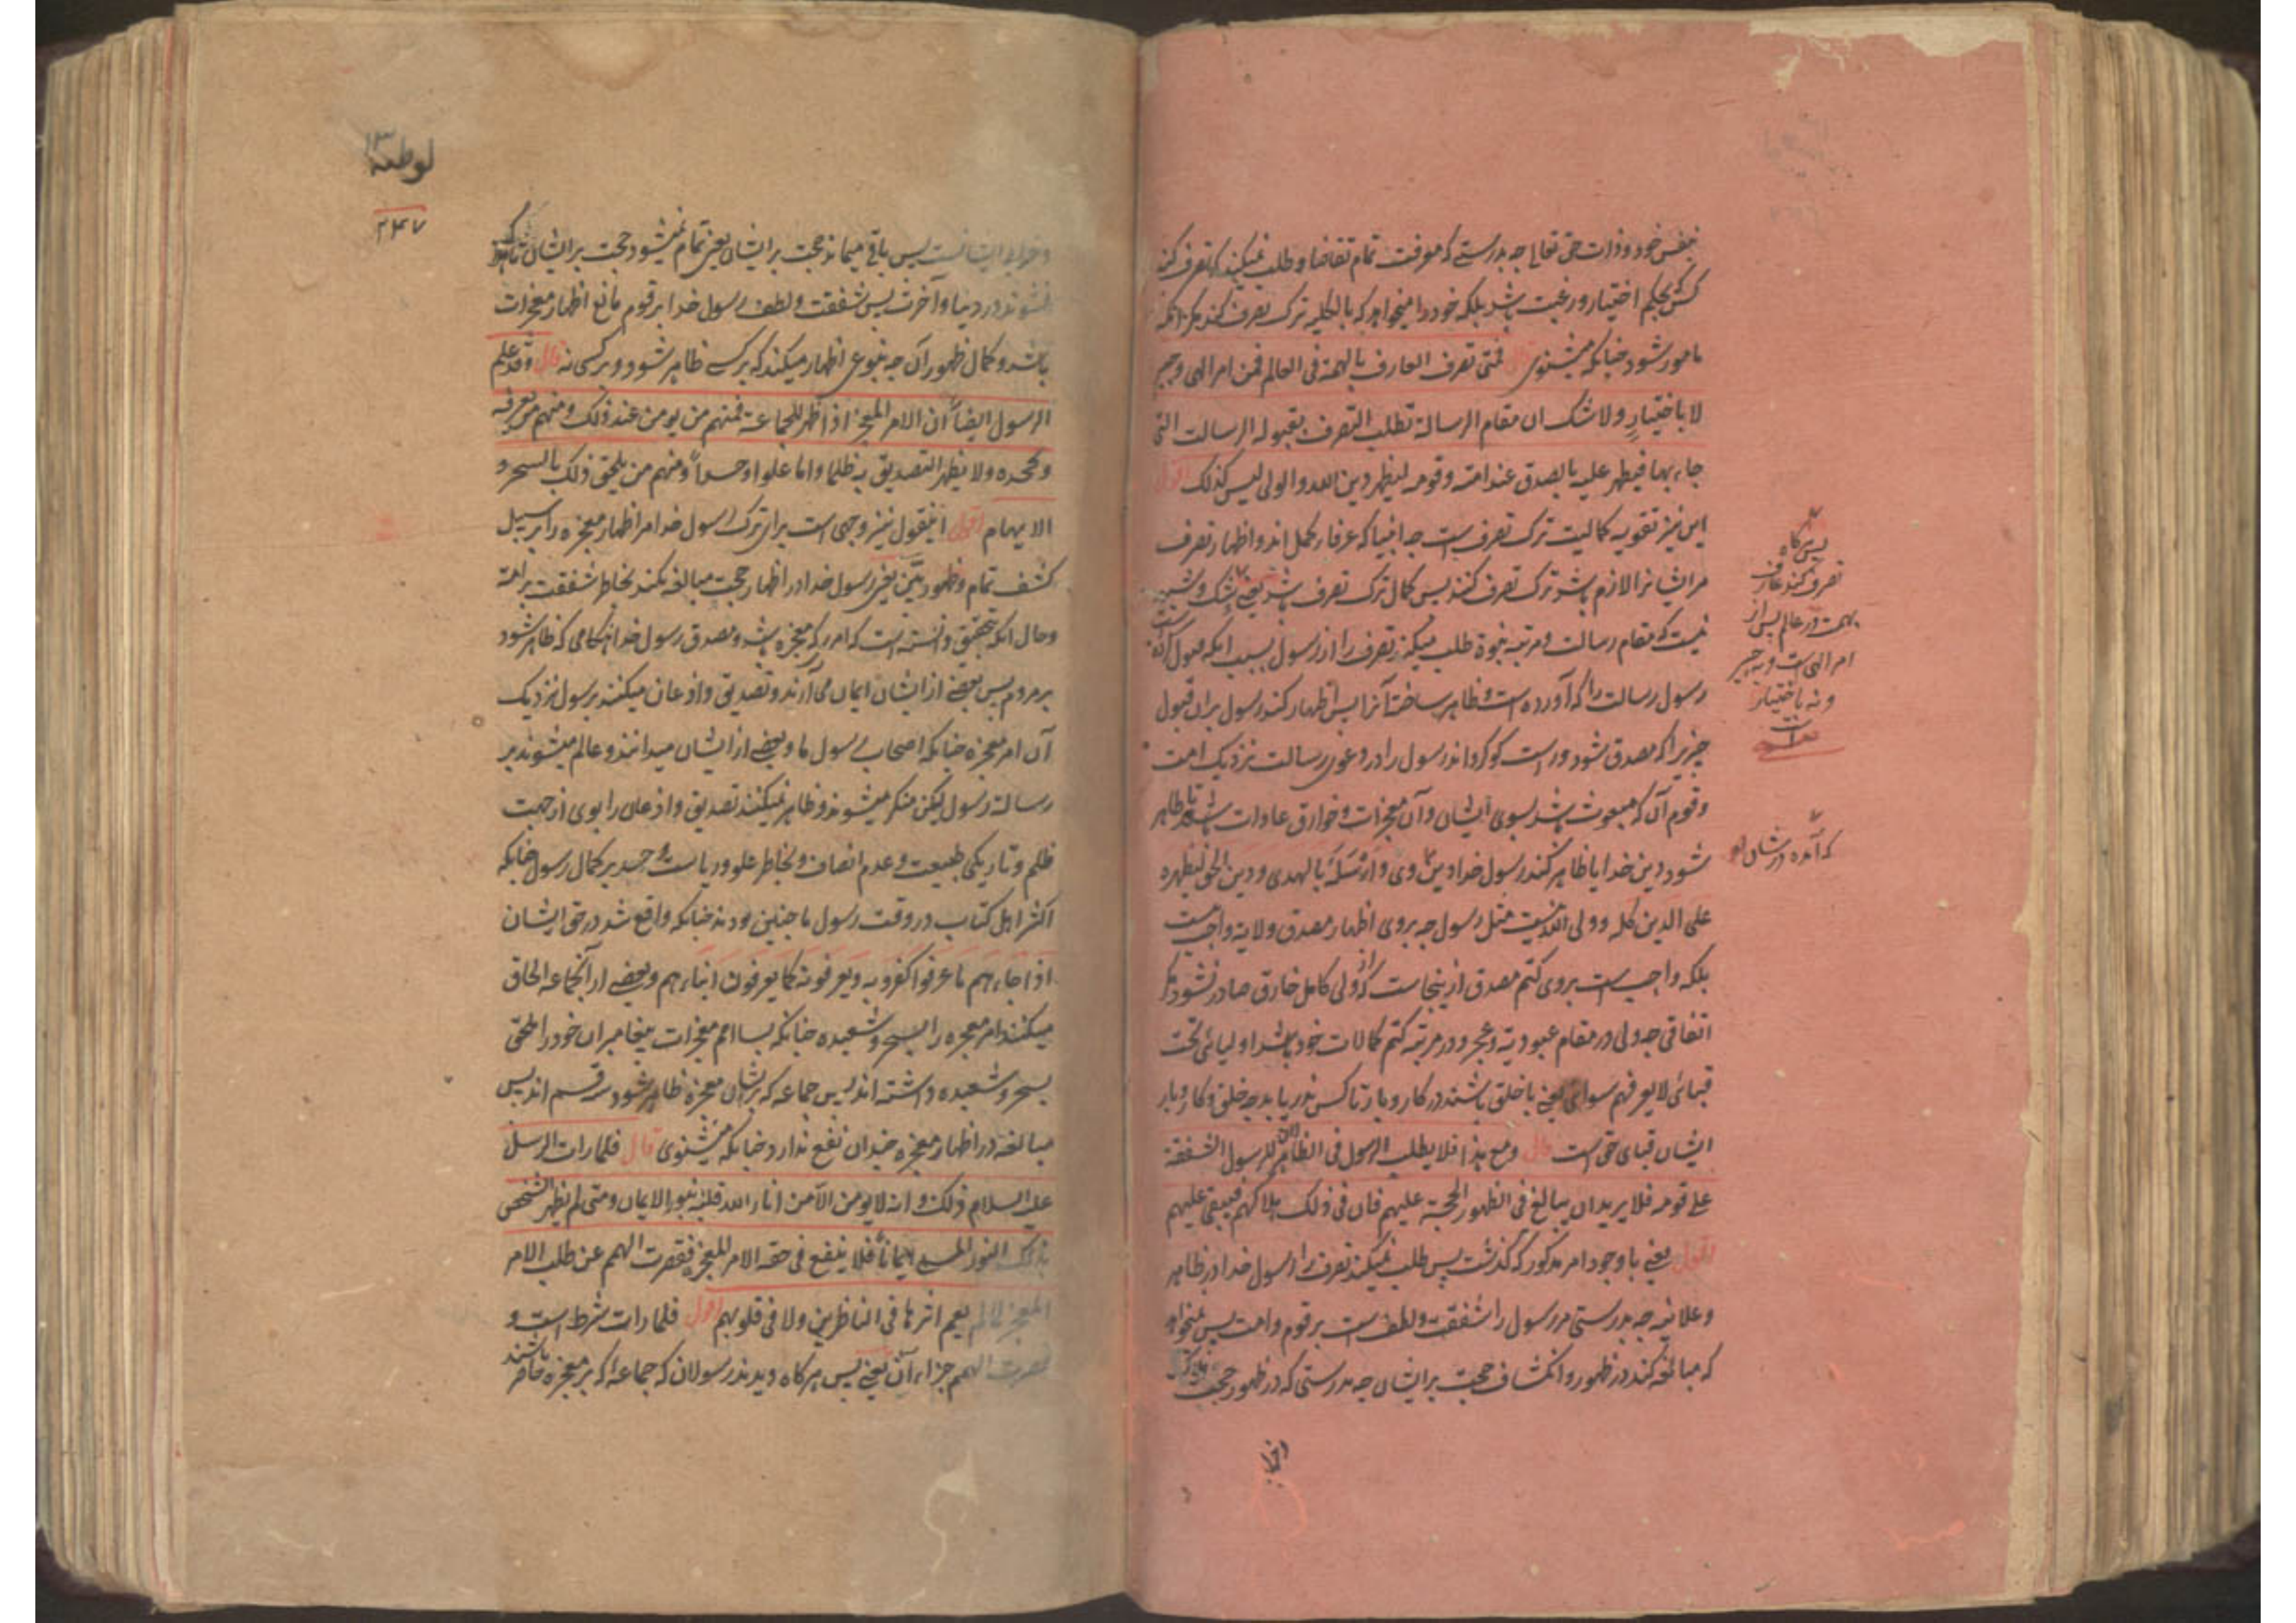 بنفس خود و ذات حق تعالی چه بدرستے که معرفت تمام تقاضا و طلب نمیکند که تصرف کند
کسی بحکم اختیار و رغبت باشد بلکه خود را میخواهد که بالکلیه ترک تصرف کند مگر آنکه
مامور شود چنانکه میشنوی قال فمتی تصرف العارف بالهمة فی العالم فمن امر الهی و جبر
لا باختیارٍ ولا شک ان مقام الرسالة تطلب التصرف بقبوله الرسالت التی
جاء بها فیظهر علیه ما یصدق عند امته و قومه لیظهر دین الله و الولی لیس کذلک اقول
این نیز تقویه کمالیت ترک تصرف است چه انبیا که عرفاء کمل اند و اظهار تصرف
مر ایشانرا لازم باشد ترک تصرف کنند پس کمال ترک تصرف باشد یعنے شک و شبه
نیست که مقام رسالت و مرتبه نبوة طلب میکند تصرف را از رسول بسبب آنکه قبول کرده
رسول رسالت را که آورده است و ظاهر ساخته آنرا پس اظهار کند رسول بران قبول
چیزیرا که مصدق شود و راست گو گرداند رسول را در دعوی رسالت نزدیک امت
و قوم آن که مبعوث باشد بسوی ایشان و آن معجزات و خوارق عادات باشد تا ظاهر
شود دین خدا یا ظاهر کند رسول خدا دین وی و ارسله بالهدی و دین الحق لیظهره
علی الدین کله و ولی الله نیست مثل رسول چه بروی اظهار مصدق ولایة واجب نیست
بلکه واجب است بروی کتم مصدق ازینجاست که از ولی کامل خارق صادر نشود مگر
اتفاقی چه ولی در مقام عبودیة و عجز و در مرتبه کتم کمالات خود باشد اولیائی تحت
قبائی لا یعرفهم سوائی یعنے با خلق باشند در کار و بار تا کس ندریابد چه خلق و کار و بار
ایشان قبای حق است قال و مع هذا فلا یطلب الرسول فی الظاهر لان للرسول الشفقة
علی قومه فلا یرید ان یبالغ فی الظهور الحجة علیهم فان فی ذلک هلاکهم فیبقی علیهم
اقول یعنے با وجود امر مذکور که گذشت پس طلب نمیکند تصرف را رسول خدا در ظاهر
و علانیه چه بدرستی مر رسول را شفقت و لطف است بر قوم و امت پس نمیخواهد
که مبالغه کند در ظهور و انکشاف حجت بر ایشان چه بدرستی که در ظهور حجت هلاک
پس هرگاه
تصرف کند عارف
بهمت در عالم پس از
امر الهی است و بجبر
و نه باختیار
است
که آمده در شان او
لوطیه ۱۳
۲۴۷
و خرابی ایشانست پس باقی میماند حجت بر ایشان یعنی تمام نمیشود حجت بر ایشان تا هلاک
نشوند در دنیا و آخرت پس شفقت و لطف رسول خدا بر قوم مانع اظهار معجزات
باشد و کمال ظهور آن چه بنوعی اظهار میکند که بر کسے ظاهر شود و بر کسی نه قال و قد علم
الرسول ایضاً ان الامر المعجز اذا ظهر للجماعة فمنهم من یومن عند ذلک و منهم من یعرفه
و یجحده ولا یظهر التصدیق به ظلما و اما علوا و حسداً و منهم من یلحق ذلک بالسحر و
الایهام اقول اینقول نیز وجهی است برای ترک رسول خدا مر اظهار معجزه را بر سبیل
کشف تمام و ظهور بیّن یعنی رسول خدا در اظهار حجت مبالغه نکند بخاطر شفقت بر امة
و حال آنکه بتحقیق دانسته است که امریکه معجزه باشد و مصدق رسول خدا هنگامی که ظاهر شود
بر مردم پس بعضے از ایشان ایمان می آرند و تصدیق و اذعان میکنند برسول نزدیک
آن امر معجزه چنانکه اصحاب رسول ما و بعضے از ایشان میدانند و عالم میشوند بر
رسالت رسول لیکن منکر میشوند و ظاهر نمیکنند تصدیق و اذعان را بوی از جهت
ظلم و تاریکی طبیعت و عدم انصاف و بخاطر علو و ریاست و حسد بر کمال رسول چنانکه
اکثر اهل کتاب در وقت رسول ما چنین بودند چنانکه واقع شد در حق ایشان
اذا جاءهم ما عرفوا کفروا به و یعرفونه کما یعرفون ابناءهم و بعضے از آنجماعه الحاق
میکنند امر معجزه را بسحر و شعبده چنانکه بسا امم معجزات پیغامبران خود را ملحق
بسحر و شعبده داشته اند پس جماعه که بر ایشان معجزه ظاهر شود سه قسم اند پس
مبالغه در اظهار معجزه چندان نفع ندارد چنانکه میشنوی قال فلما رات الرسل
علیه السلام ذلک و انه لا یومن الا من انار الله قلبه بنور الایمان و متی لم ینظر الشخص
بذلک النور المسمی ایماناً فلا ینفع فی حقه الامر المعجز فقصرت الهمم عن طلب الامر
المعجز لما لم یعم اثرها فی الناظرین ولا فی قلوبهم اقول فلما رات شرط است و
فقصرت الهمم جزاء آن یعنے پس هرگاه دیدند رسولان که جماعه که بر معجزه حاضر باشند